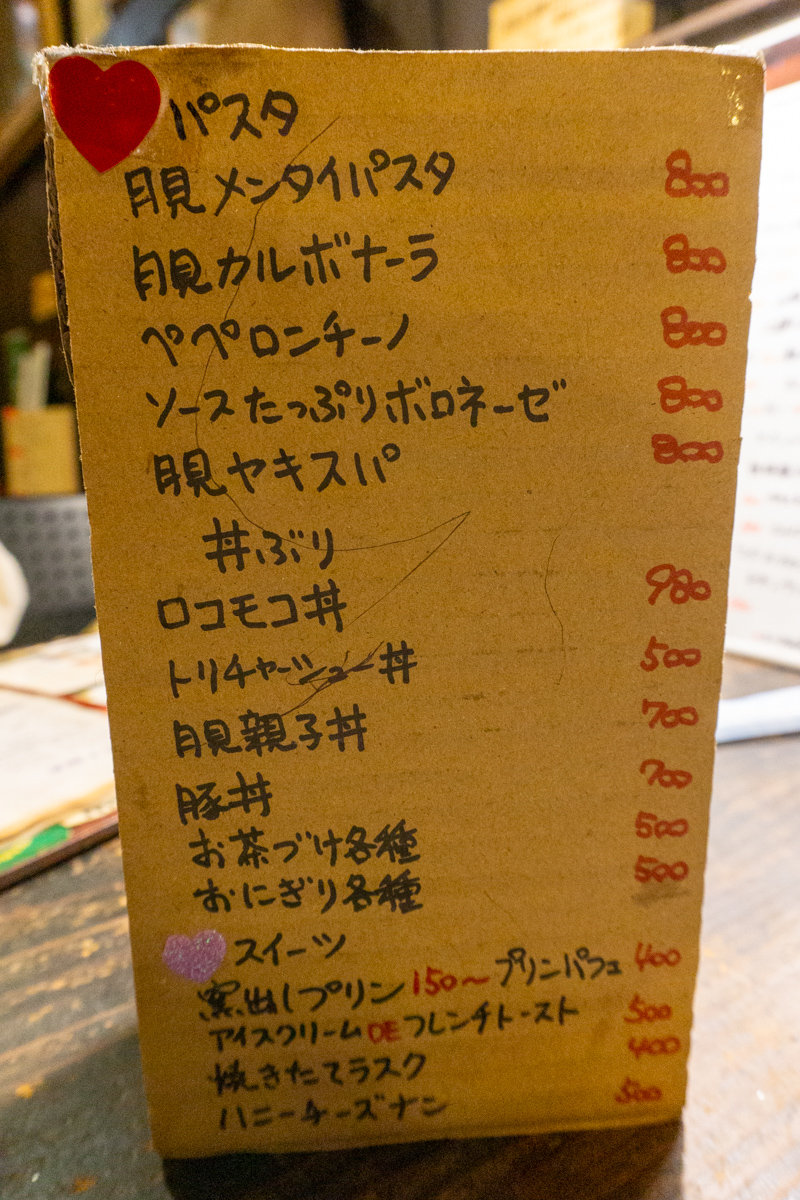 パスタ
月見メンタイパスタ 800
月見カルボナーラ 800
ペペロンチーノ 800
ソースたっぷりボロネーゼ 800
月見ヤキスパ 800
丼ぶり
ロコモコ丼 980
トリチャーシュー丼 500
月見親子丼 700
豚丼 700
お茶づけ各種 500
おにぎり各種 500
スイーツ
窯出しプリン150〜プリンパフェ 400
アイスクリームDEフレンチトースト 500
焼きたてラスク 400
ハニーチーズナン 500